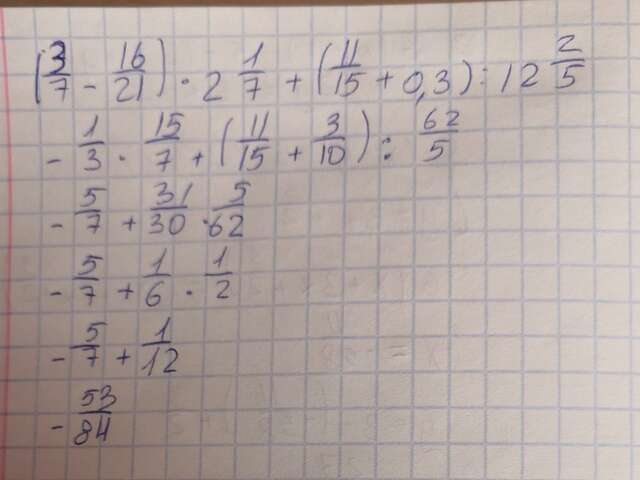 (3/7 - 16/21) · 2 1/7 + (11/15 + 0,3) : 12 2/5
- 1/3 · 15/7 + (11/15 + 3/10) : 62/5
- 5/7 + 31/30 · 5/62
- 5/7 + 1/6 · 1/2
- 5/7 + 1/12
- 53/84